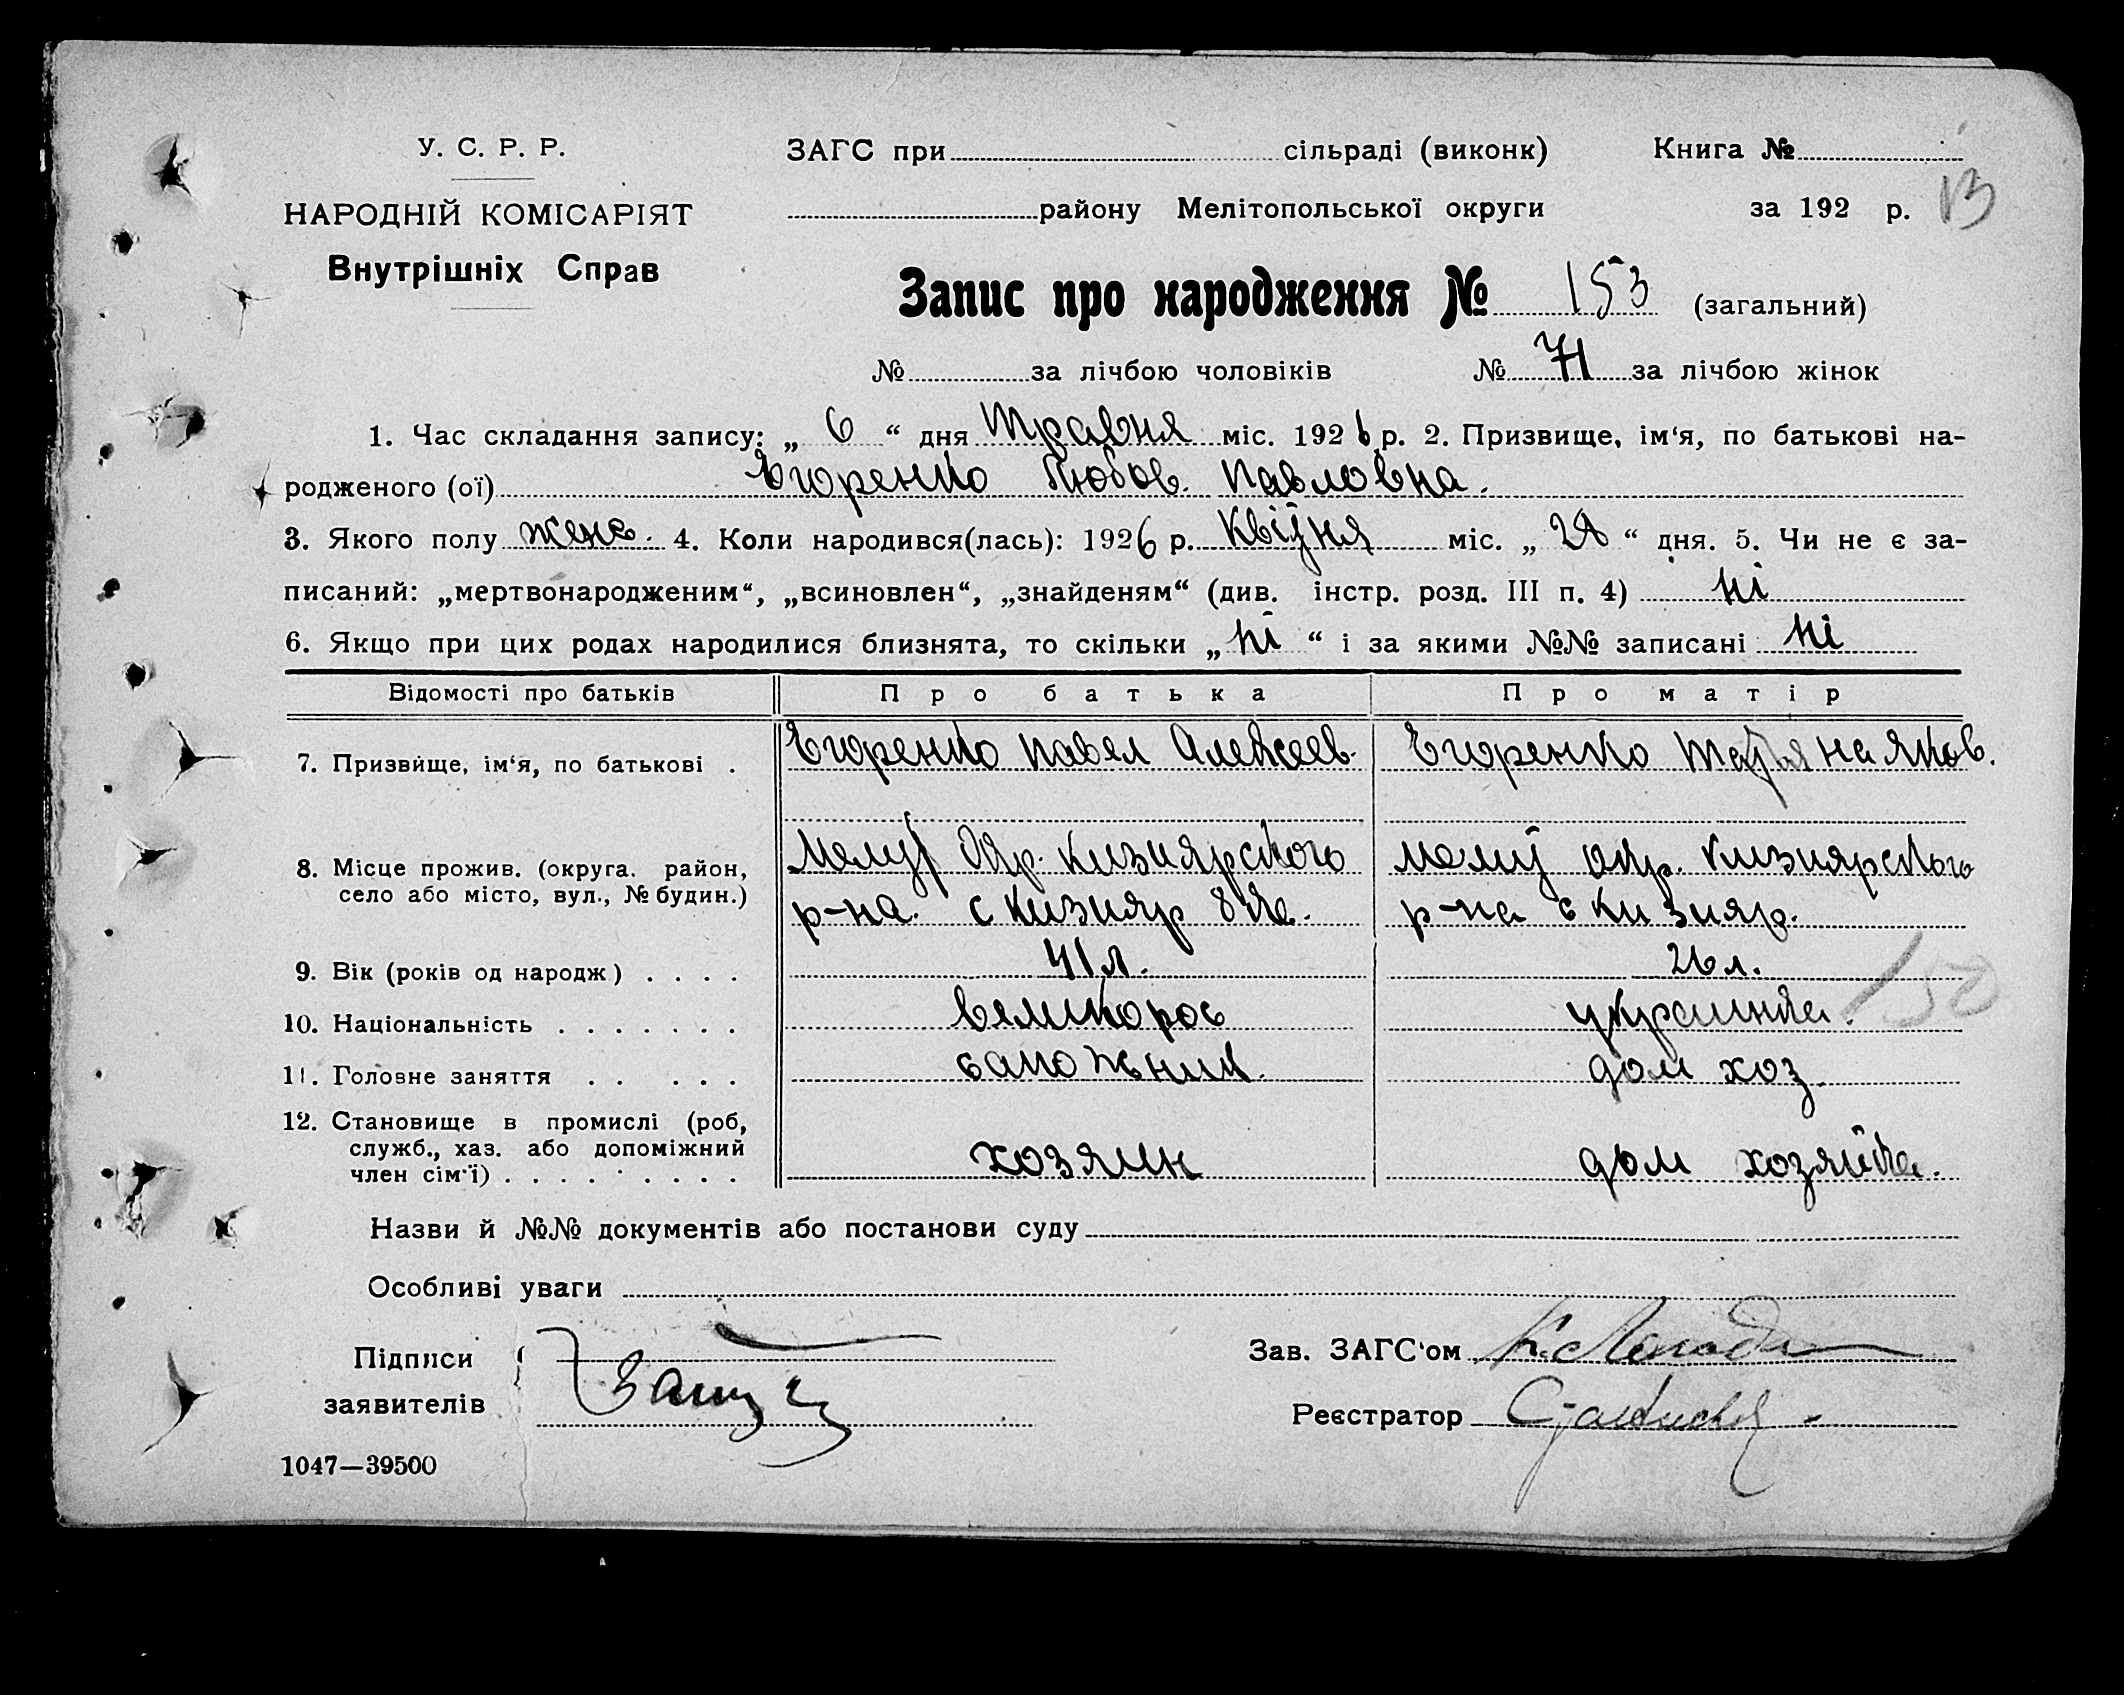 У. С. Р. Р.
НАРОДНІЙ КОМІСАРІЯТ
Внутрішніх Справ
ЗАГС при сільраді (виконк) Книга №
району Мелітопольської округи за 192 р. 13
Запис про народження № 153 (загальний)
№ за лічбою чоловіків № 71 за лічбою жінок
1. Час складання запису: „ 6 “ дня Травня міс. 1926 р. 2. Призвище, ім‘я, по батькові на-
родженого (ої) Егоренко Любов. Павловна.
3. Якого полу жено. 4. Коли народився(лась): 1926 р. Квітня міс. „ 28 “ дня. 5. Чи не є за-
писаний: „мертвонародженим“, „всиновлен“, „знайденям“ (див. інстр. розд. III п. 4) ні
6. Якщо при цих родах народилися близнята, то скільки „ ні “ і за якими №№ записані ні
Відомості про батьків Про батька Про матір
7. Призвище, ім‘я, по батькові . Егоренко Павел Алексеев. Егоренко на Яков.
8. Місце прожив. (округа. район, Мелит Окр. Кизиярского Мелит окр. Кизиярского
село або місто, вул., № будин.) р-на. с Кизияр р-на с Кизияр.
9. Вік (років од народж) . . . . 41 л. 26 л.
10. Національність . . . . . . . великорос украинка. 150
11. Головне заняття . . . . . заможник. дом хоз.
12. Становище в промислі (роб,
служб., хаз. або допоміжний
член сім‘ї) . . . . . . . . . хозяин дом хозяйка.
Назви й №№ документів або постанови суду
Особливі уваги
Підписи
заявителів
Зав. ЗАГС‘ом
Реєстратор
1047—39500